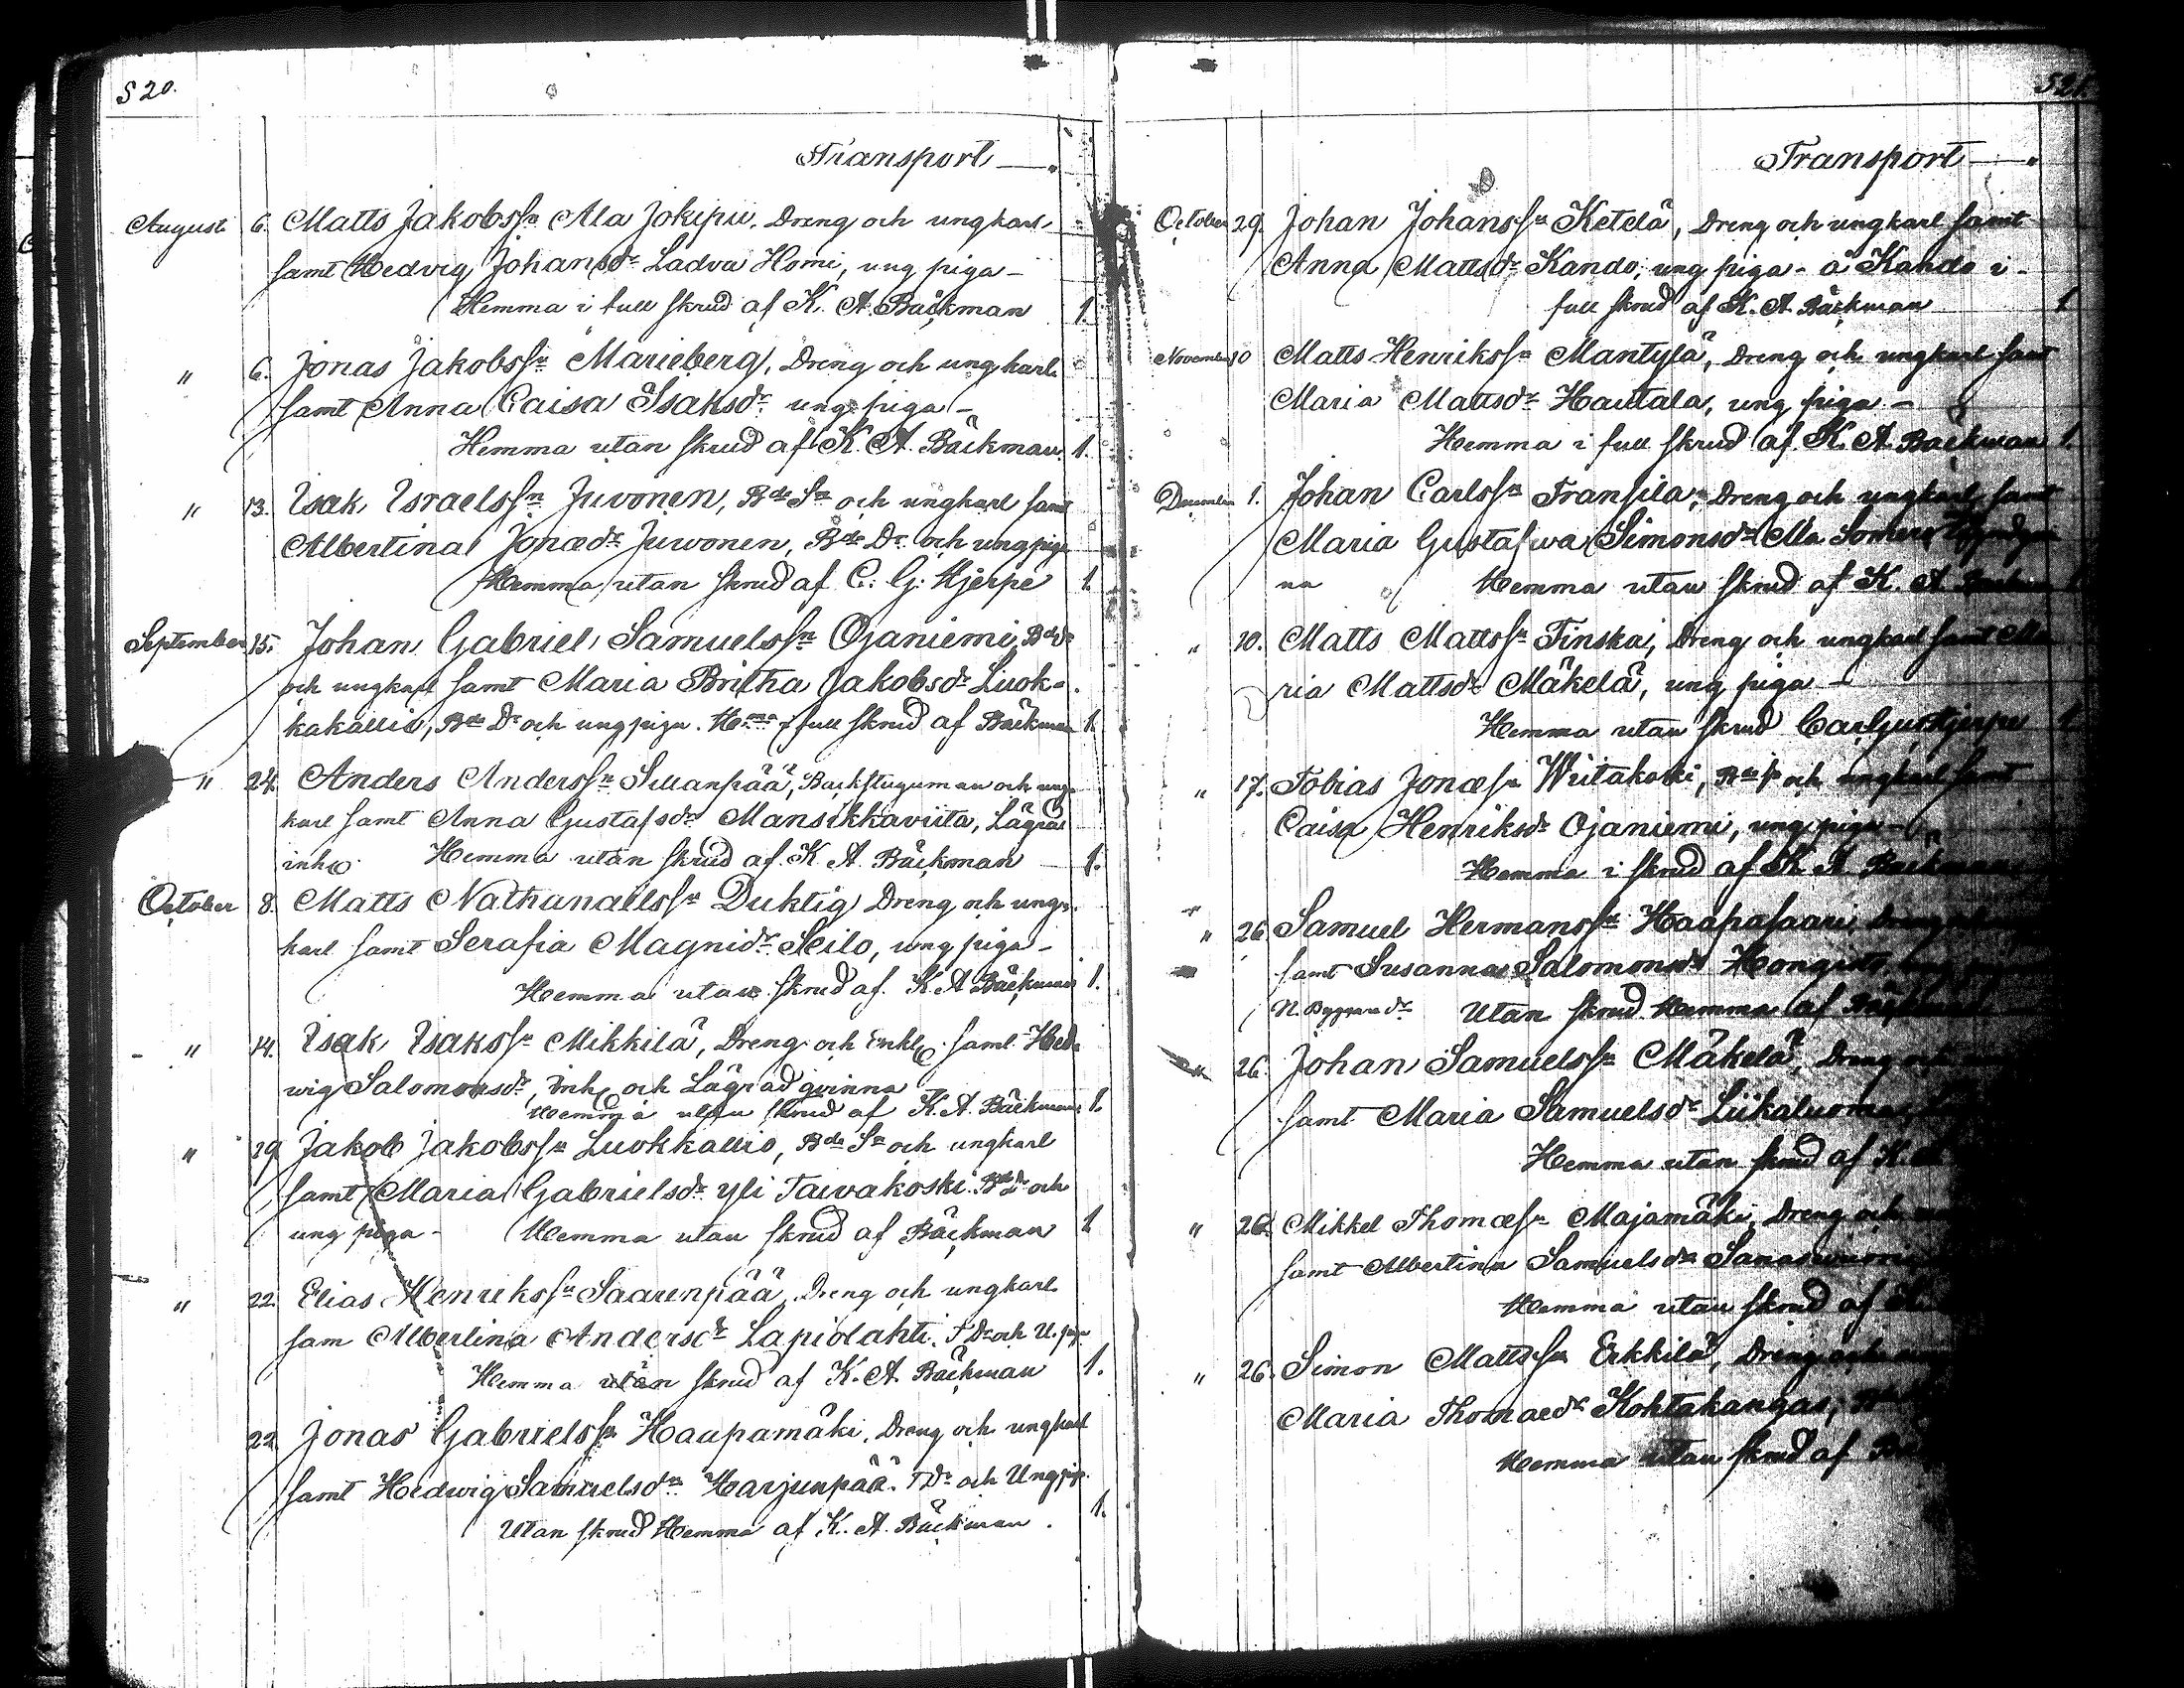 520.
Transport
August 6. Matts Jakobssn Ala Jokipii, Dreng och ungkarl
samt Hedvig Johansdr Ladva Homi, ung piga -
Hemma i full skrud af K. A. Bäckman 1.
" 6. Jonas Jakobssn Marieberg, Dreng och ungkarl
samt Anna Caisa Isaksdr ung piga -
Hemma utan skrud af K. A. Bäckman 1.
" 13. Isak Israelssn Juvonen, Bde Sn och ungkarl samt
Albertina Jonædr Juvonen, Bde Dr och ungpiga
Hemma utan skrud af C. G. Hjerpe 1.
September 15. Johan Gabriel Samuelssn Ojaniemi, Bds
och ungkarl samt Maria Britha Jakobsdr Luok-
kakallio, Bde Dr och ungpiga. Hma i full skrud af Bäckman 1.
" 24. Anders Anderssn Sillanpää, Backstuguman och ung-
karl samt Anna Gustafsdr Mansikkaviita, Lägrad
inh. Hemma utan skrud af K. A. Bäckman 1.
October 8. Matts Nathanaelssn Duktig Dreng och ung-
karl samt Serafia Magnidr Seilo, ung piga -
Hemma utan skrud af K. A. Bäckman 1.
" 14. Isak Isakssn Mikkilä, Dreng och Enkl. samt Hed-
wig Salomonsdr, Inh. och Lägrad qvinna
Hemma utan skrud af K. A. Bäckman 1.
" 29 Jakob Jakobssn Luokkallio, Bde Sn och ungkarl
samt Maria Gabrielsdr Yli Taivakoski Bde Dr och
ung piga - Hemma utan skrud af Bäckman 1
" 22. Elias Henrikssn Saarenpää, Dreng och ungkarl
sam Albertina Andersdr Lapiolahti, T Dr och U. piga
Hemma utan skrud af K. A. Bäckman 1.
22. Jonas Gabrielssn Haapamäki, Dreng och ungkarl
samt Hedwig Samuelsdr Harjunpää. T Dr och Ungpiga
Utan skrud Hemma af K. A. Bäckman. 1.
521.
Transport
October 29. Johan Johanssn Ketelä, Dreng och ungkarl samt
Anna Mattsdr Kando, ung piga - å Kando i
full skrud af K. A. Bäckman 1
November 10 Matts Henrikssn Mäntylä, Dreng och ungkarl samt
Maria Mattsdr Hautala, ung piga -
Hemma i full skrud af K. A. Bäckman 1.
December 1. Johan Carlssn Fransila, Dreng och ungkarl samt
Maria Gustafwa Simonsdr Ala Somero
na Hemma utan skrud af K. A.
" 10. Matts Mattssn Finska, Dreng och ungkarl samt Ma
ria Mattsdr Mäkelä, ung piga -
Hemma utan skrud Carl Gust Hjerpe 1.
" 17. Tobias Jonæsn Wiitakoski, Bde sn och ungkarl samt
Caisa Henriksdr Ojaniemi, ung piga -
Hemma i skrud af K. A. Bäckman
" 26 Samuel Hermanssn Haapasaari, Dreng
samt Susanna Salomonsdr Hongisto
N. Byggaredr Utan skrud Hemma af
" 26. Johan Samuelssn Mäkelä, Dreng och
samt Maria Samuelsdr Liikaluoma
Hemma utan skrud af K.
" 26. Mikkel Thomæsn Majamäki, Dreng och
samt Albertina Samuelsdr
Hemma utan skrud af
" 26. Simon Mattssn Erkkilä, Dreng och
Maria Thomaedr Kohtakangas,
Hemma utan skrud af